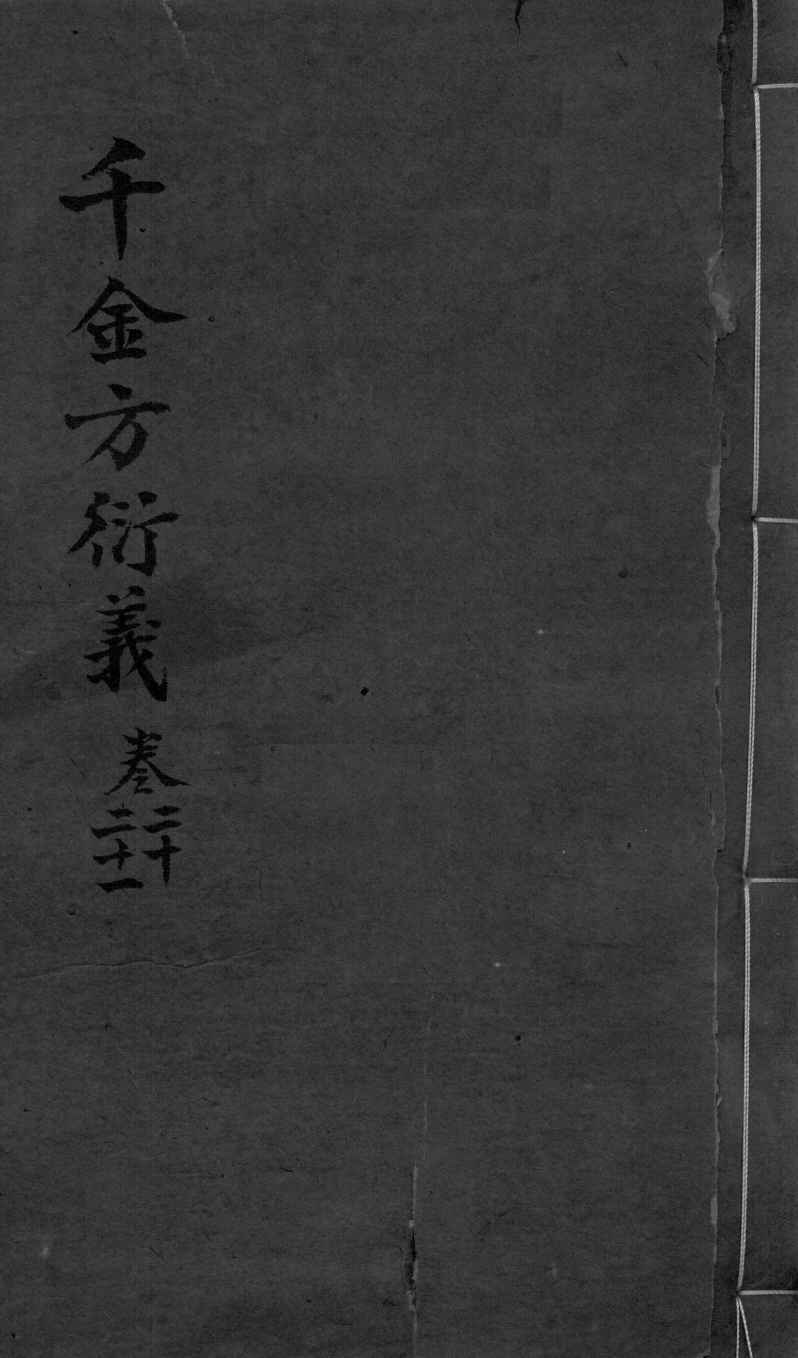 千金方衍義
卷
二十
二十一